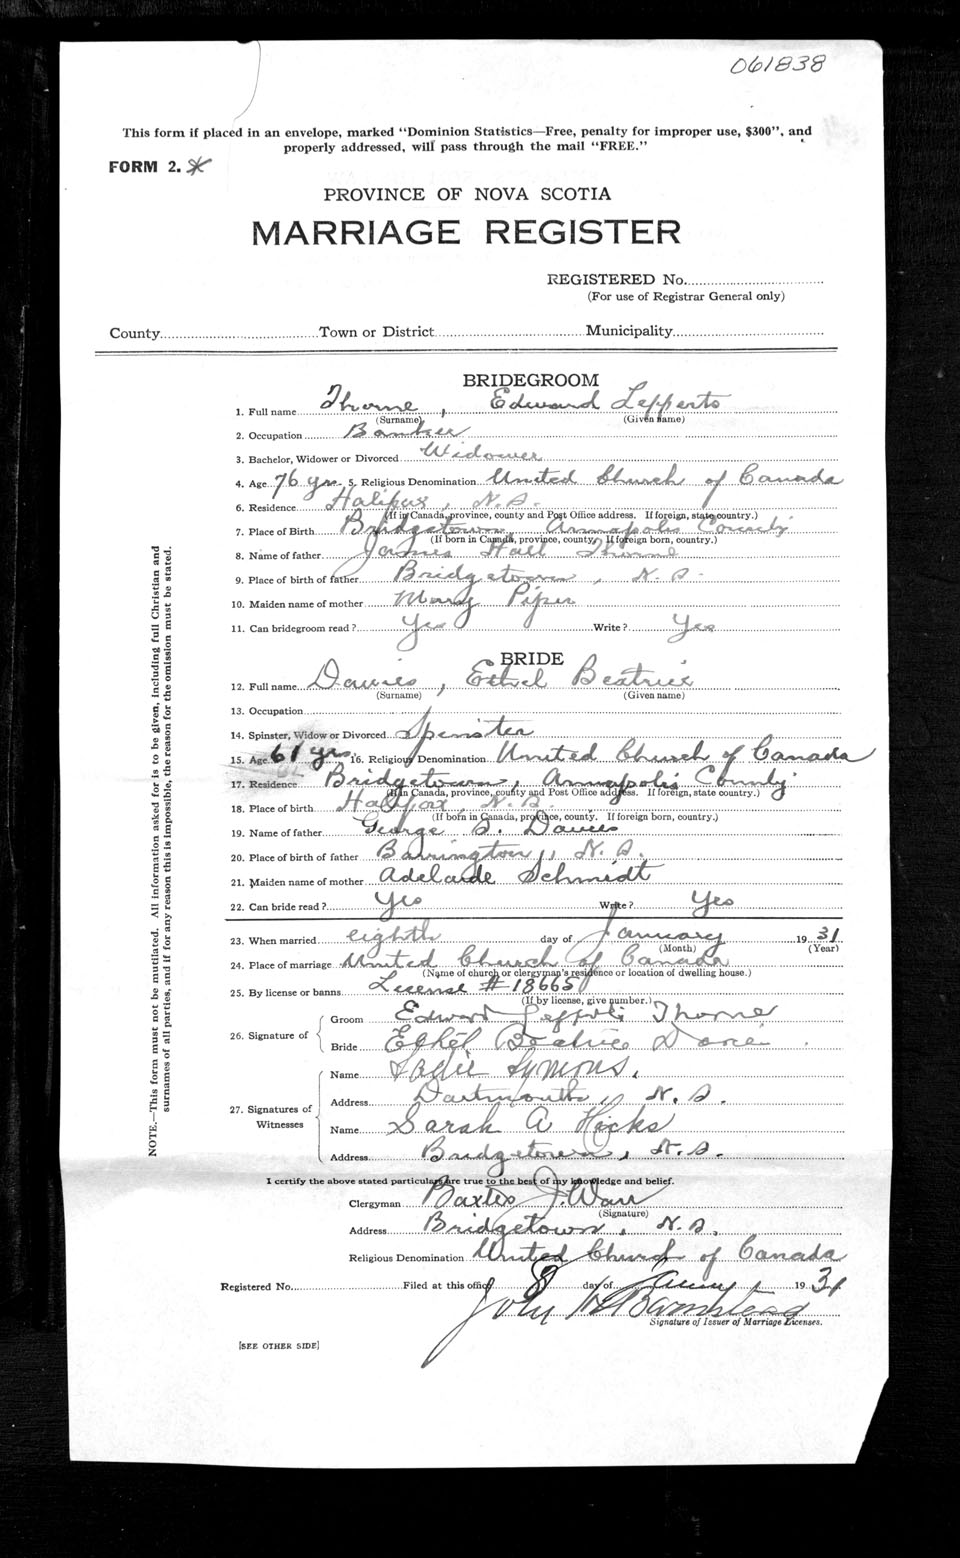 061838
This form if placed in an envelope, marked "Dominion Statistics—Free, penalty for improper use, $300", and
properly addressed, will pass through the mail "FREE."
FORM 2.
PROVINCE OF NOVA SCOTIA
MARRIAGE REGISTER
REGISTERED No.
(For use of Registrar General only)
County Town or District Municipality
BRIDEGROOM
1. Full name Thorne , Edward Lepperts
(Surname) (Given name)
2. Occupation Banker
3. Bachelor, Widower or Divorced Widower
4. Age 76 yrs. 5. Religious Denomination United Church of Canada
6. Residence Halifax, N.S.
(If in Canada, province, county and Post Office address. If foreign, state country.)
7. Place of Birth Bridgetown Annapolis County
(If born in Canada, province, county. If foreign born, country.)
8. Name of father James Hall Thorne
9. Place of birth of father Bridgetown, N.S.
10. Maiden name of mother Mary Piper
11. Can bridegroom read? Yes Write? Yes
BRIDE
12. Full name Davies , Ethel Beatrice
(Surname) (Given name)
13. Occupation
14. Spinster, Widow or Divorced Spinster
15. Age 61 yrs. 16. Religious Denomination United Church of Canada
17. Residence Bridgetown, Annapolis County
(If in Canada, province, county and Post Office address. If foreign, state country.)
18. Place of birth Halifax, N.S.
(If born in Canada, province, county. If foreign born, country.)
19. Name of father George S. Davies
20. Place of birth of father Barrington, N.S.
21. Maiden name of mother Adelaide Schmidt
22. Can bride read? Yes Write? Yes
23. When married eighth day of January 19 31
(Month) (Year)
24. Place of marriage United Church of Canada
(Name of church or clergyman's residence or location of dwelling house.)
25. By license or banns License # 18665
(If by license, give number.)
26. Signature of
Groom Edward Lepperts Thorne
Bride Ethel Beatrice Davies
27. Signatures of
Witnesses
Name Symons.
Address Dartmouth, N.S.
Name Sarah A Hicks
Address Bridgetown, N.S.
I certify the above stated particulars are true to the best of my knowledge and belief.
Clergyman Baxter J. Warr
(Signature)
Address Bridgetown, N.S.
Religious Denomination United Church of Canada
Registered No. Filed at this office 8 day of 19 31
John H Barnstead
Signature of Issuer of Marriage Licenses.
[SEE OTHER SIDE]
NOTE.—This form must not be mutilated. All information asked for is to be given, including full Christian and
surnames of all parties, and if for any reason this is impossible, the reason for the omission must be stated.